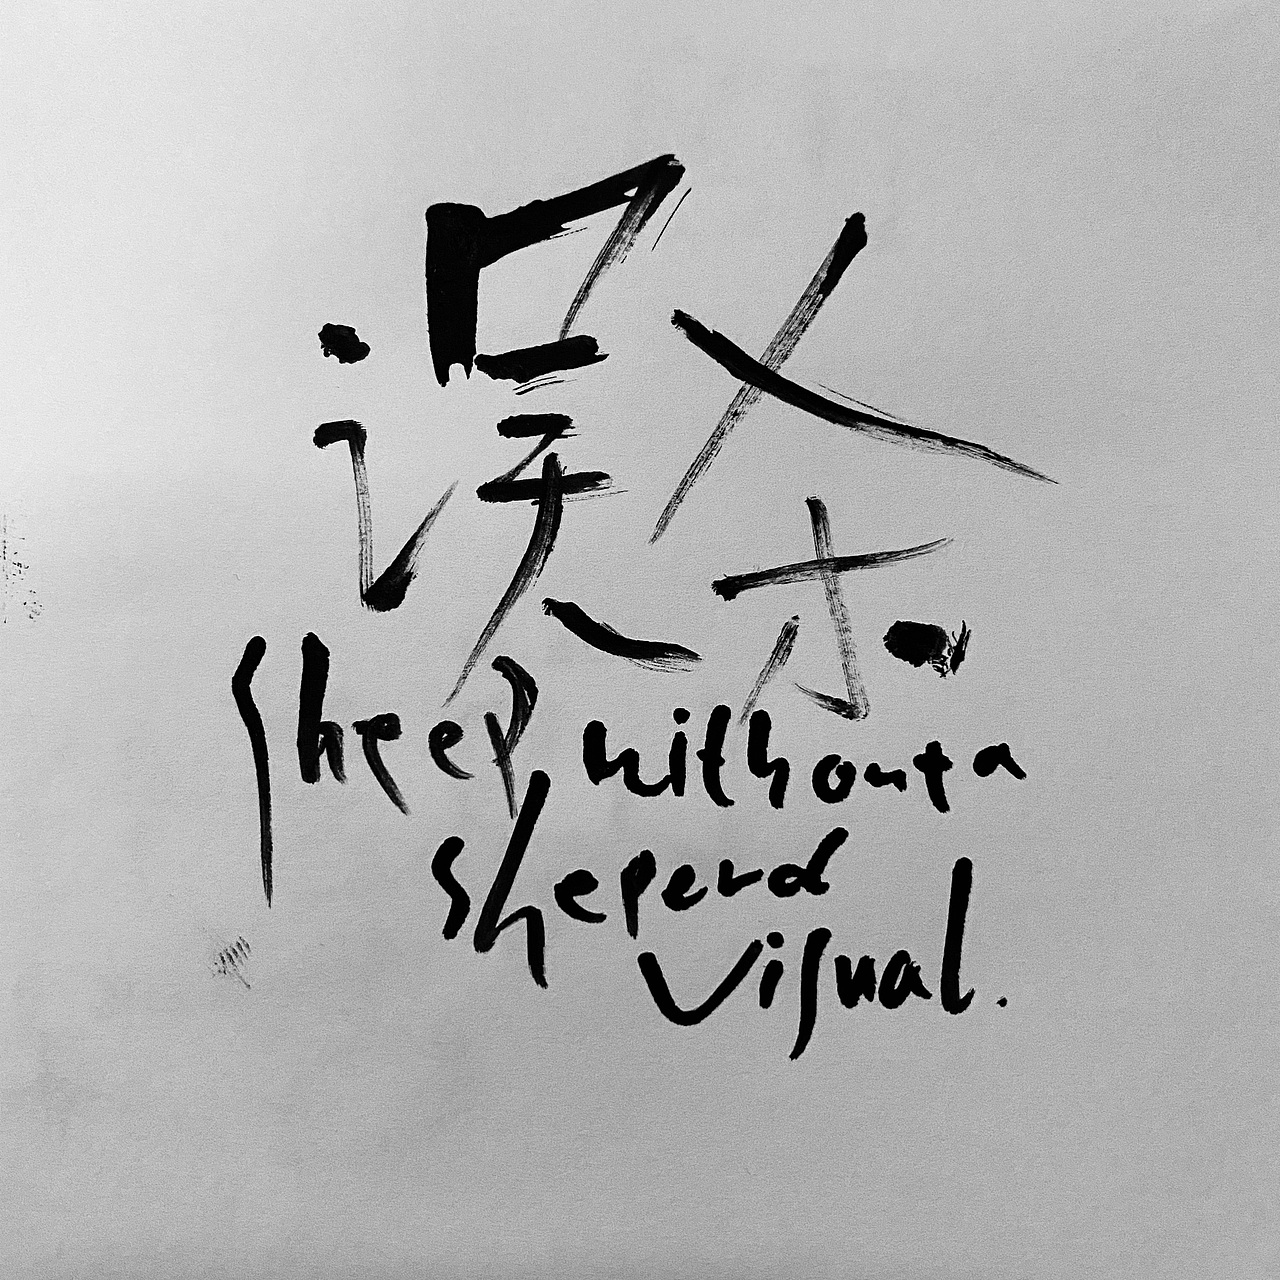 误杀
sheep without a
sheperd
visual.